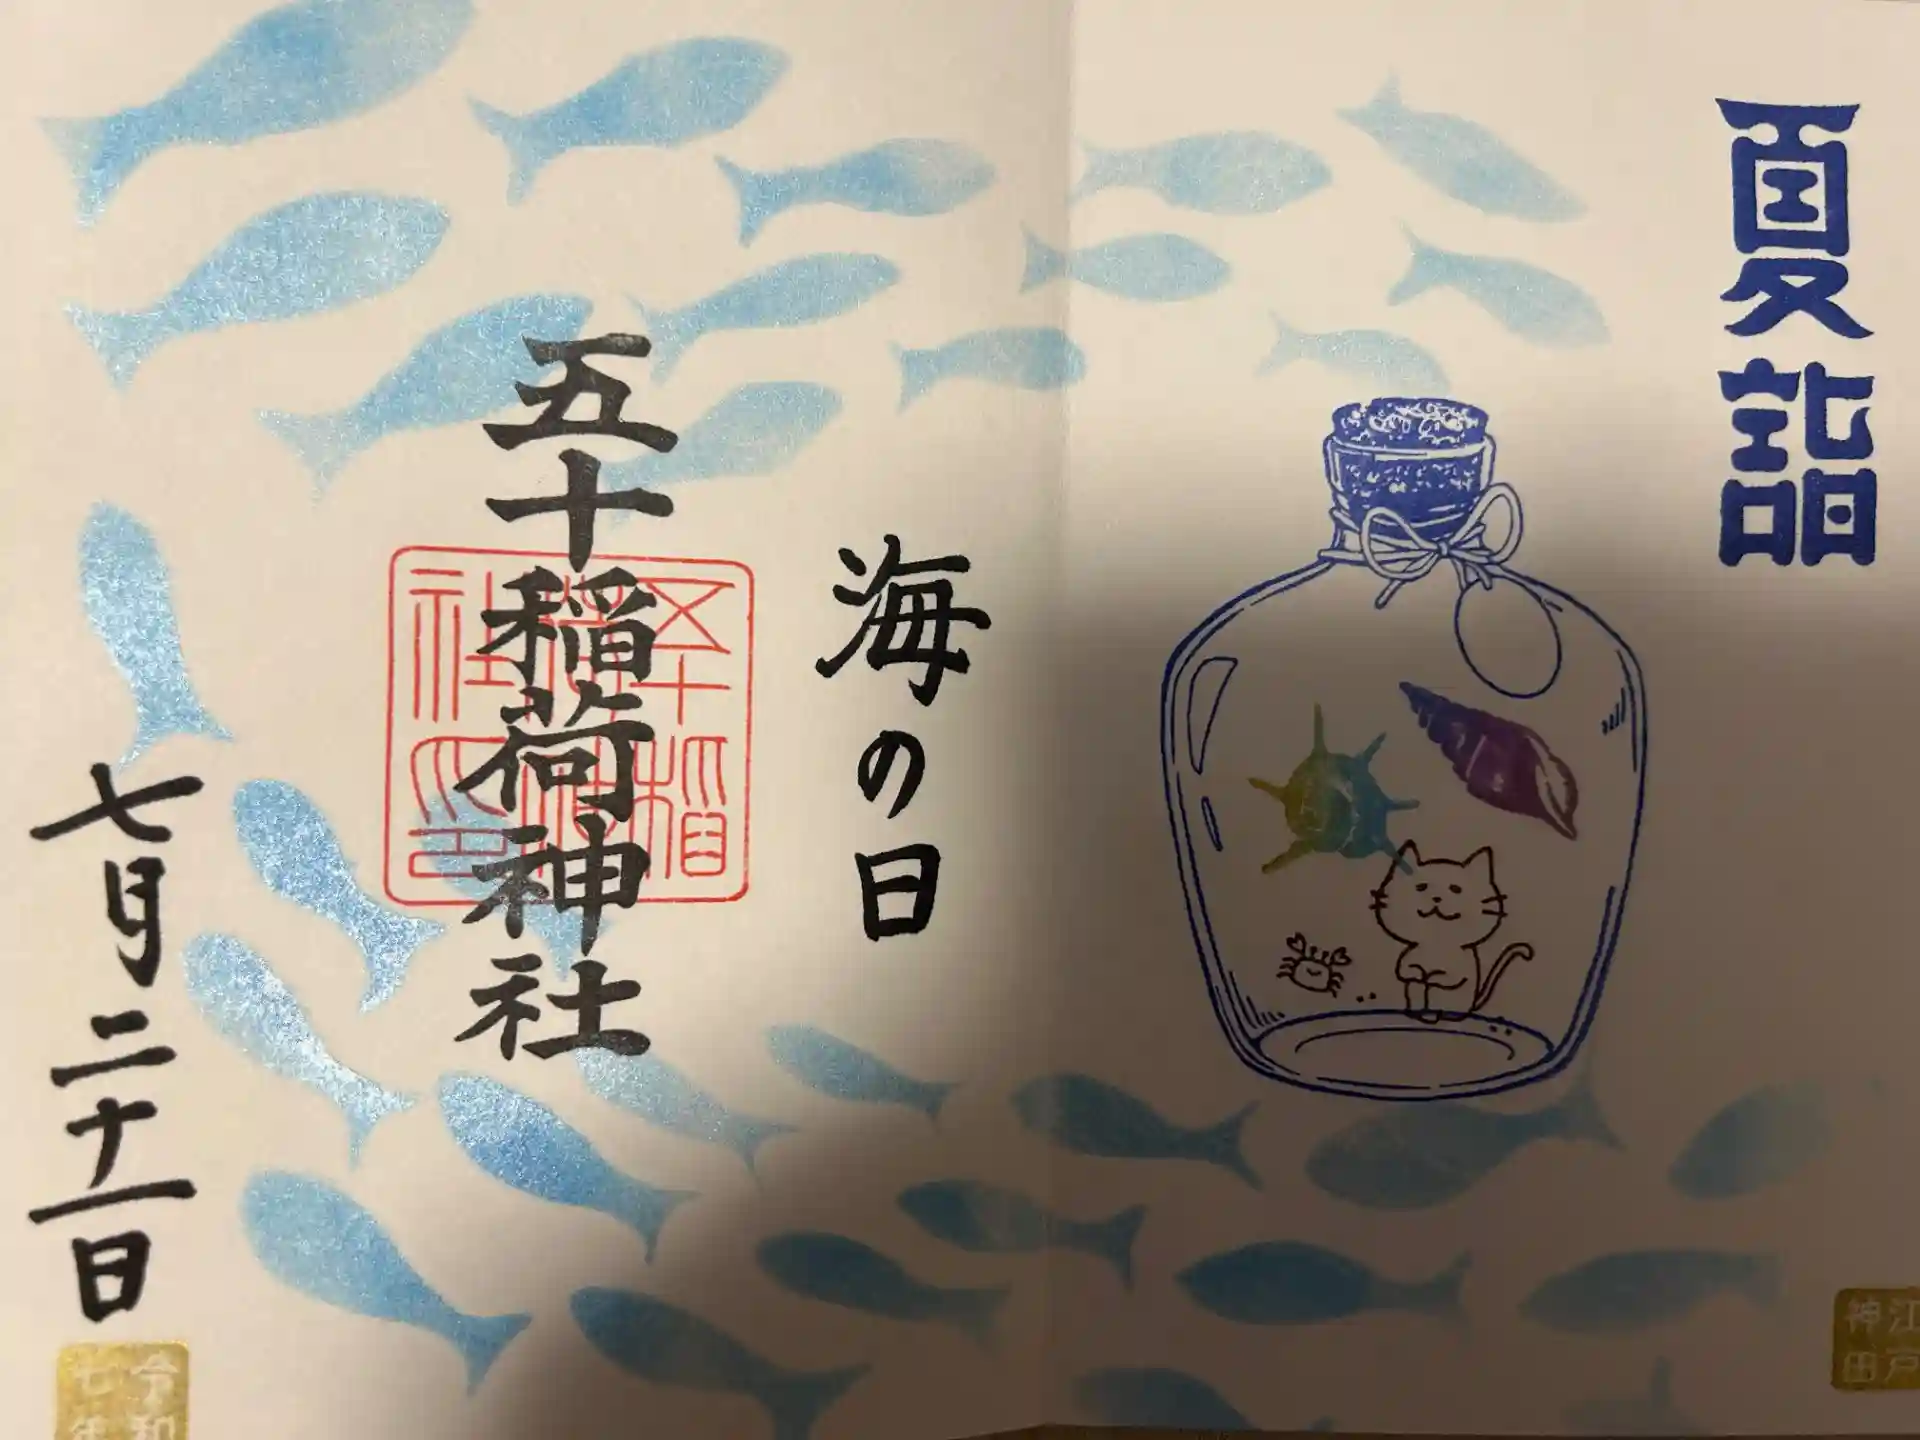 夏詣
海の日
五十稲荷神社
七月二十一日
江戸
神田
令和
七年